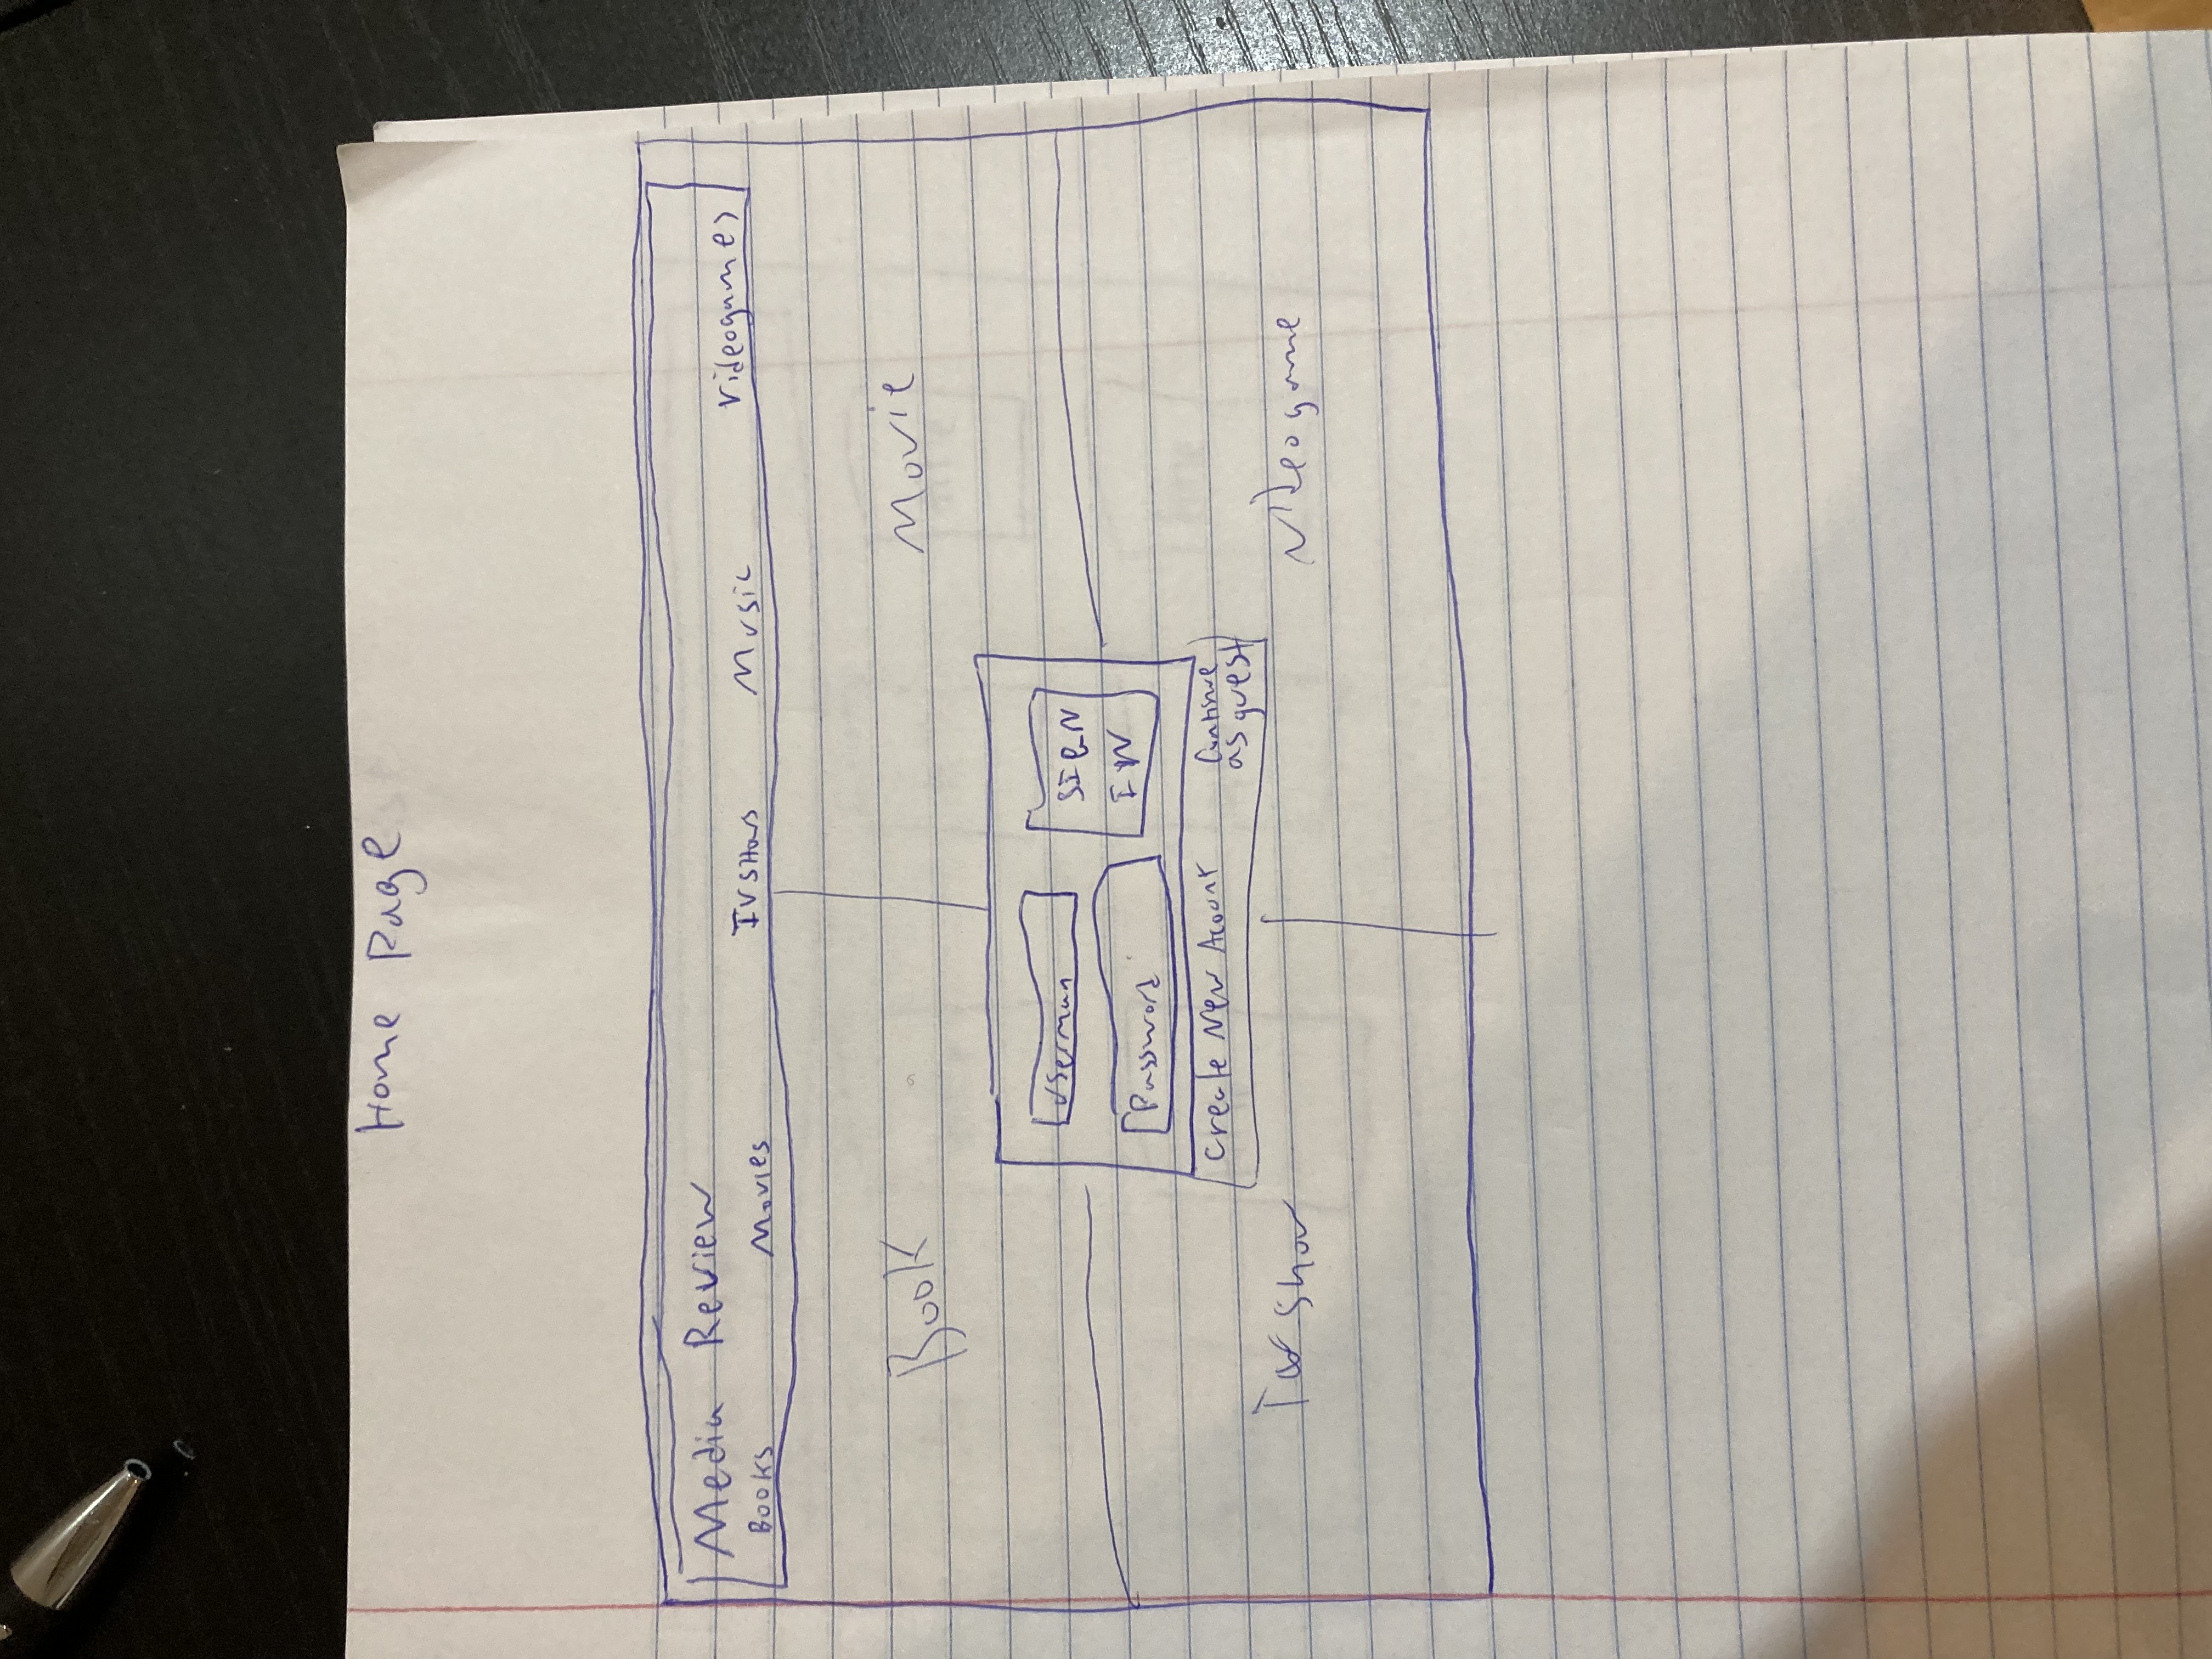 Home Page
Media Review
Books Movies TVSHows Music Videogames
Book Movie
Userman
SIGN
IN
Password
Create New Acount
Continue
as guest
TV Show Videogame